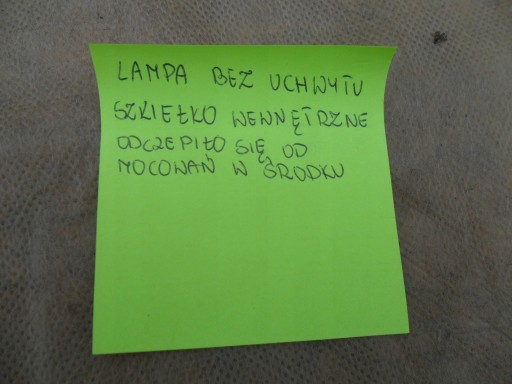 LAMPA BEZ UCHWYTU
SZKIEŁKO WEWNĘTRZNE
ODCZEPIŁO SIĘ OD
MOCOWAŃ W ŚRODKU